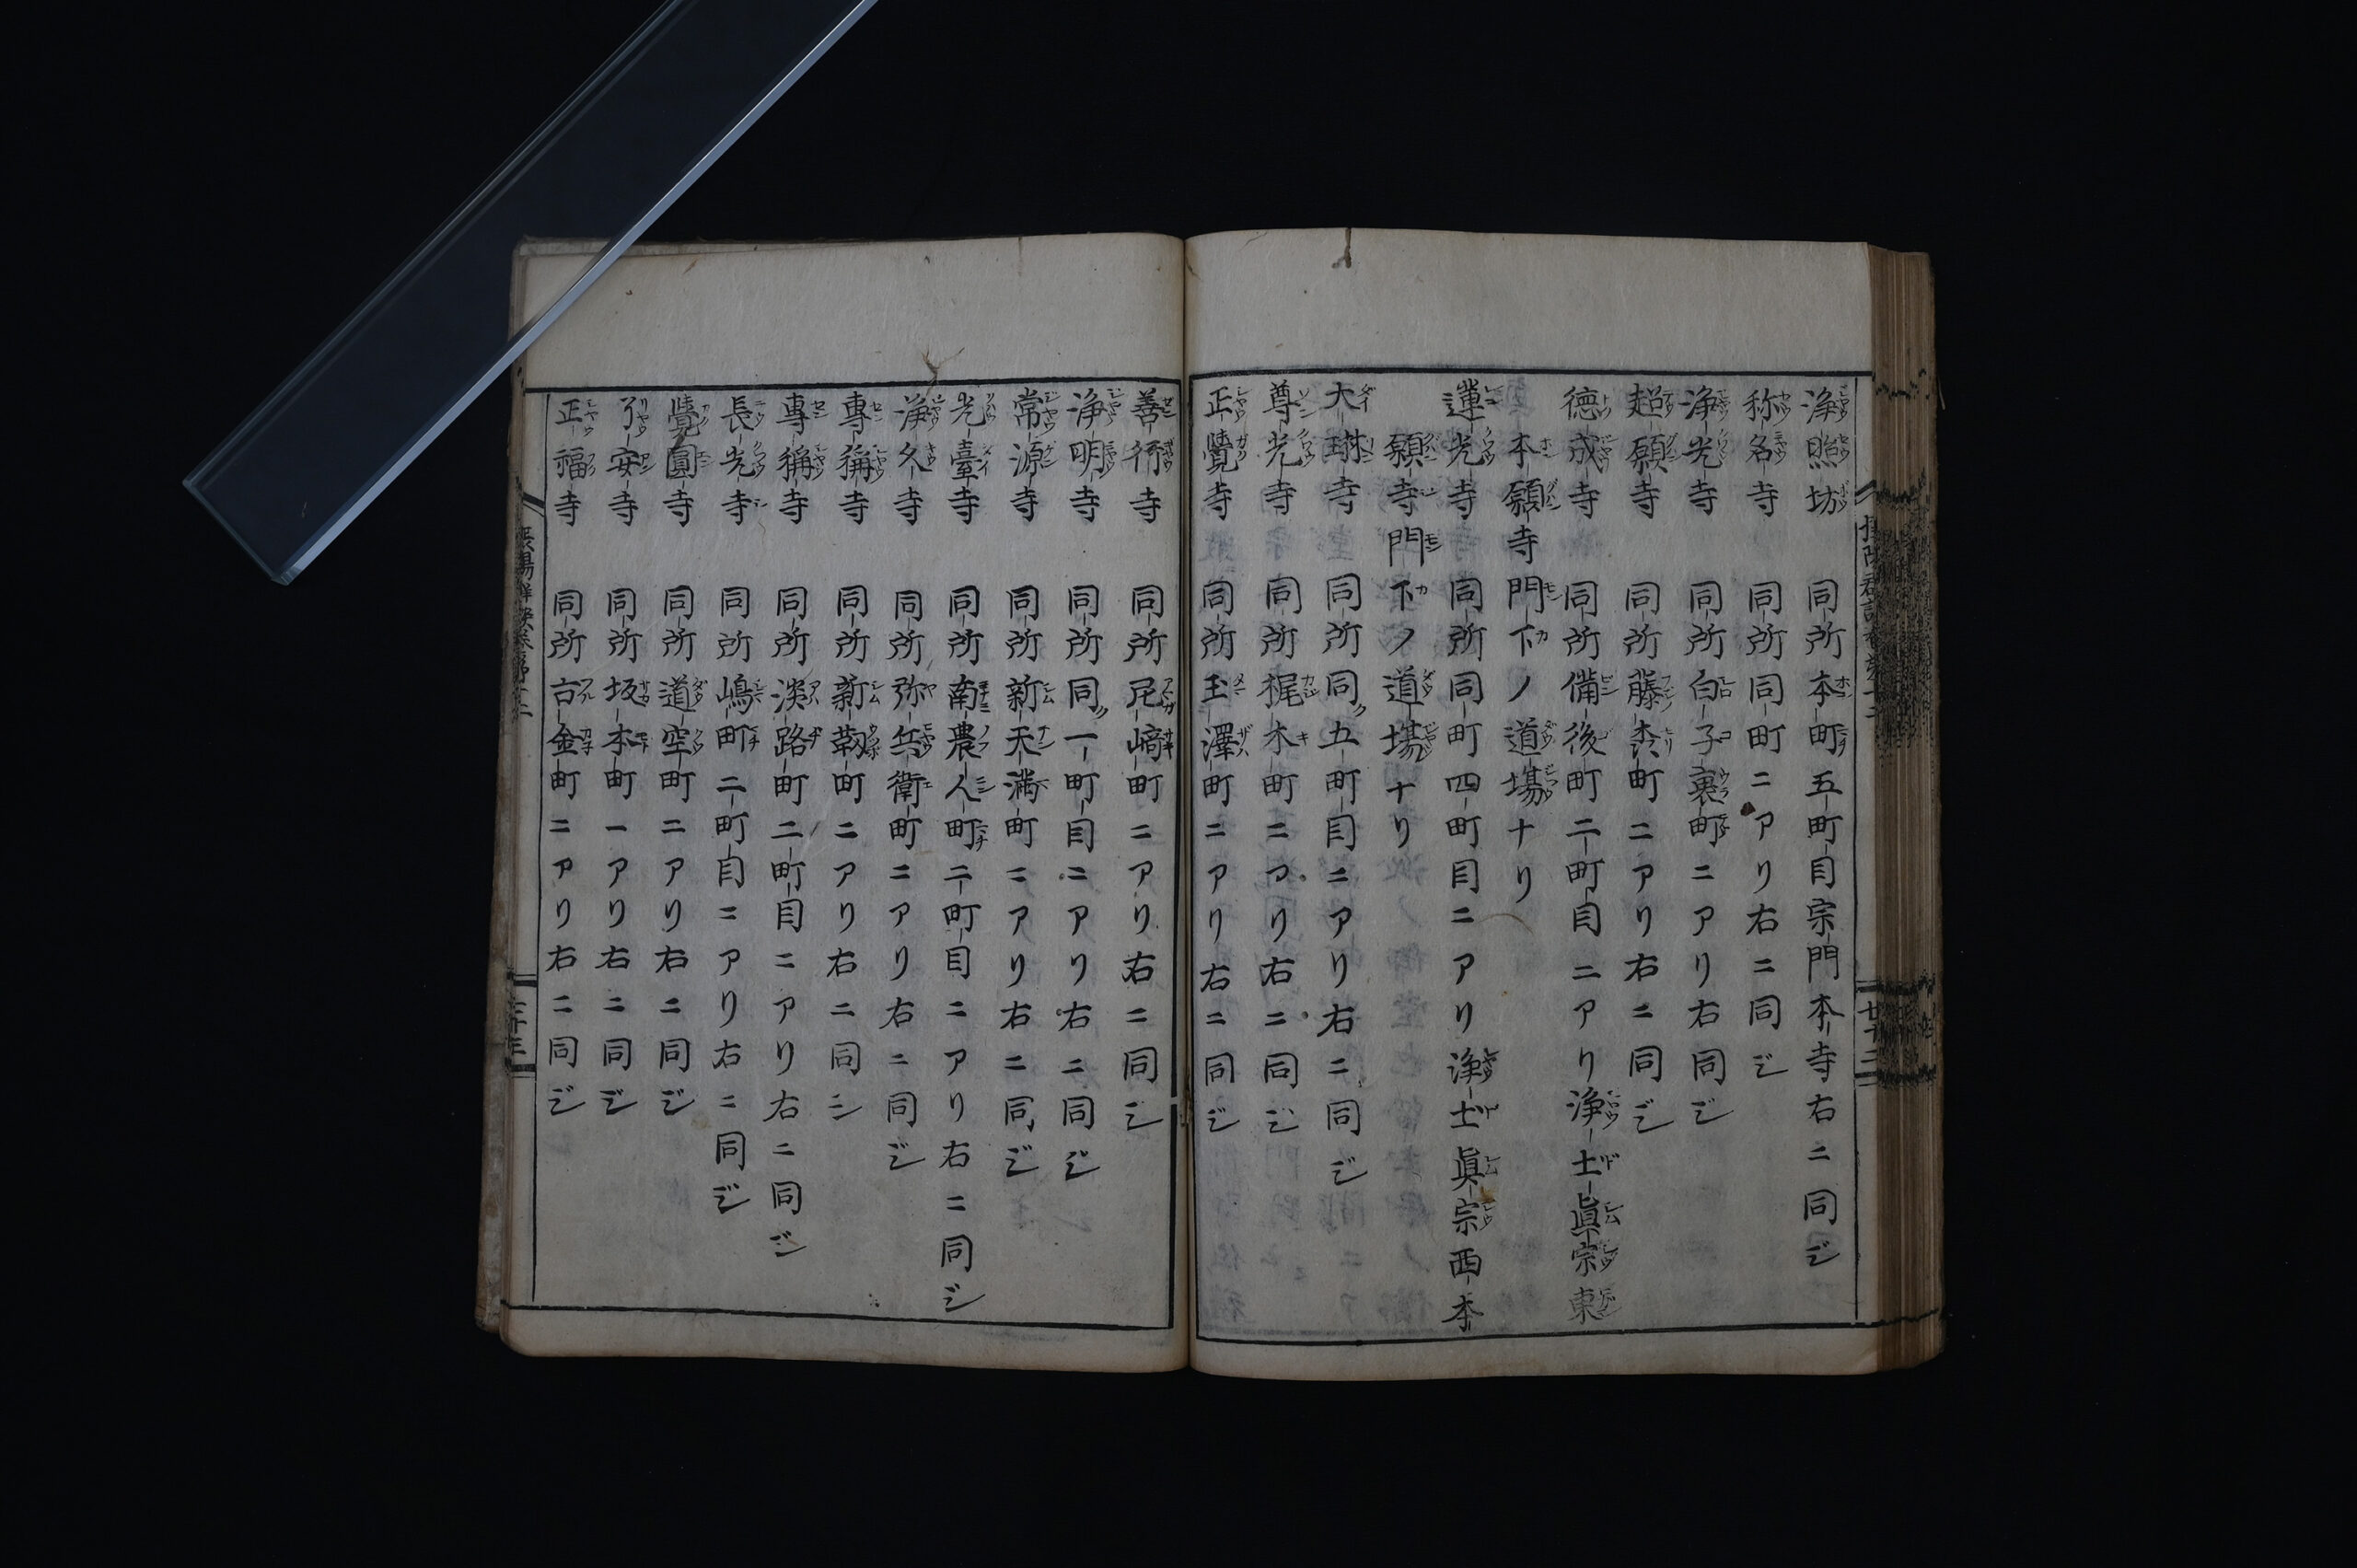 浄照坊 同所本町五町目宗門本寺右ニ同ジ
称名寺 同所同町ニアリ右ニ同ジ
浄光寺 同所白子裏町ニアリ右同ジ
超願寺 同所藤森町ニアリ右ニ同ジ
徳成寺 同所備後町二町目ニアリ浄土眞宗東
本願寺門下ノ道場ナリ
蓮光寺 同所同町四町目ニアリ浄土眞宗西本
願寺門下ノ道場ナリ
大琳寺 同所同〃五町目ニアリ右ニ同ジ
尊光寺 同所梶木町ニアリ右ニ同ジ
正覺寺 同所玉澤町ニアリ右ニ同ジ
善行寺 同所尼﨑町ニアリ右ニ同ジ
浄明寺 同所同〃一町目ニアリ右ニ同ジ
常源寺 同所新天満町ニアリ右ニ同ジ
光臺寺 同所南農人町二町目ニアリ右ニ同ジ
浄久寺 同所弥兵衛町ニアリ右ニ同ジ
專稱寺 同所新靭町ニアリ右ニ同シ
專稱寺 同所淡路町二町目ニアリ右ニ同ジ
長光寺 同所嶋町二町目ニアリ右ニ同ジ
覺圓寺 同所道空町ニアリ右ニ同ジ
了安寺 同所坂本町ニアリ右ニ同ジ
正福寺 同所古金町ニアリ右ニ同ジ